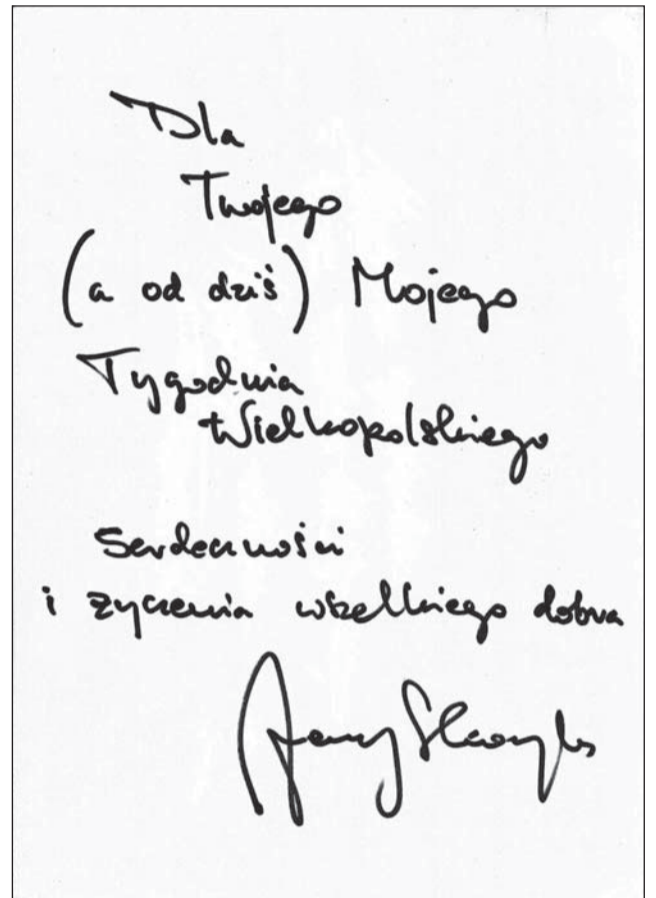 Dla
Twojego
(a od dziś) Mojego
Tygodnia
Wielkopolskiego
Serdeczności
i życzenia wszelkiego dobra
Jerzy